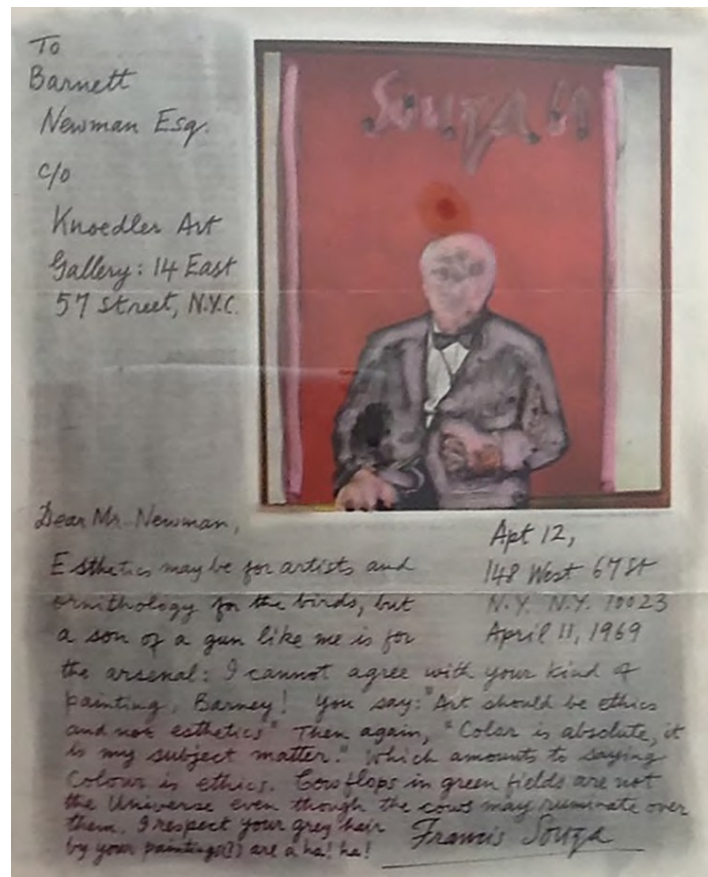 To
Barnett
Newman Esq.
c/o
Knoedler Art
Gallery: 14 East
57 Street, N.Y.C.
Souza 69
Dear Mr. Newman,
Apt 12,
148 West 67 St
N.Y. N.Y. 10023
April 11, 1969
Esthetics may be for artists and
ornithology for the birds, but
a son of a gun like me is for
the arsenal: I cannot agree with your kind of
painting, Barney! You say: "Art should be ethics
and not esthetics" Then again, "Color is absolute, it
is my subject matter." Which amounts to saying
Colour is ethics. Cowflops in green fields are not
the Universe even though the cows may ruminate over
them. I respect your grey hair
by your paintings(?) are a ha! ha!
Francis Souza